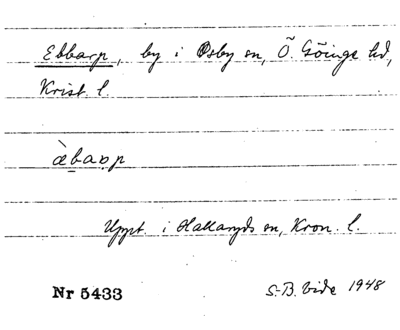 Ebbarp, by i Osby sn, Ö. Göinge hd,
Krist. l.
æ̀baṛp
Uppt. i Hallaryds sn, Kron. l.
Nr 5433 S.-B. Vide 1948